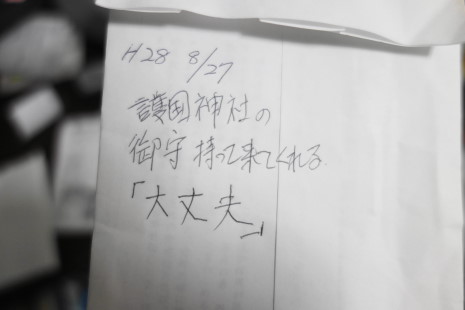 H28 8/27
護国神社の
御守持って来てくれる
「大丈夫」